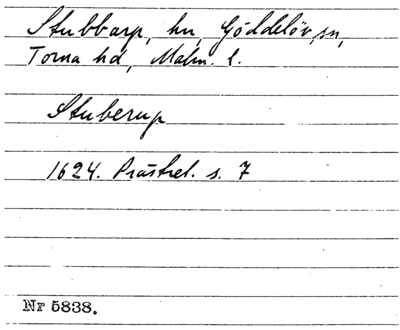 Stubbarp, hn, Gödelöv, sn,
Torna hd, Malm. l.
Stuberup
1624. Prästrel. s. 7
Nr 5838.